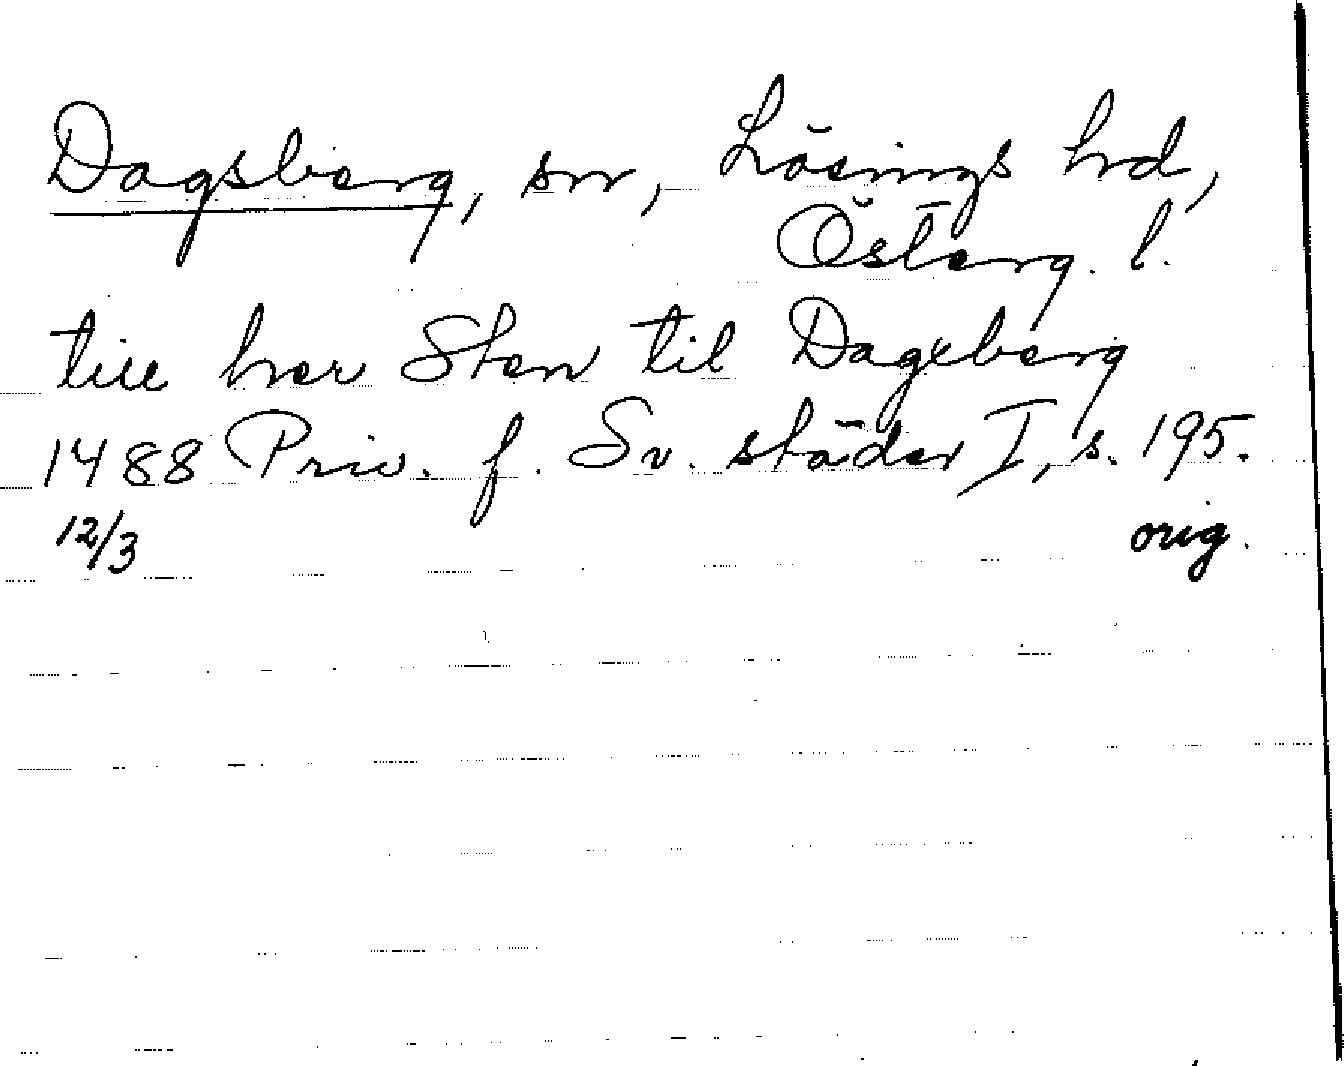 Dagsberg, sn, Lösings hd,
Österg. l.
till her Sten til Dagxberg
1488 Priv. f. Sv. städer I, s. 195.
12/3 orig.